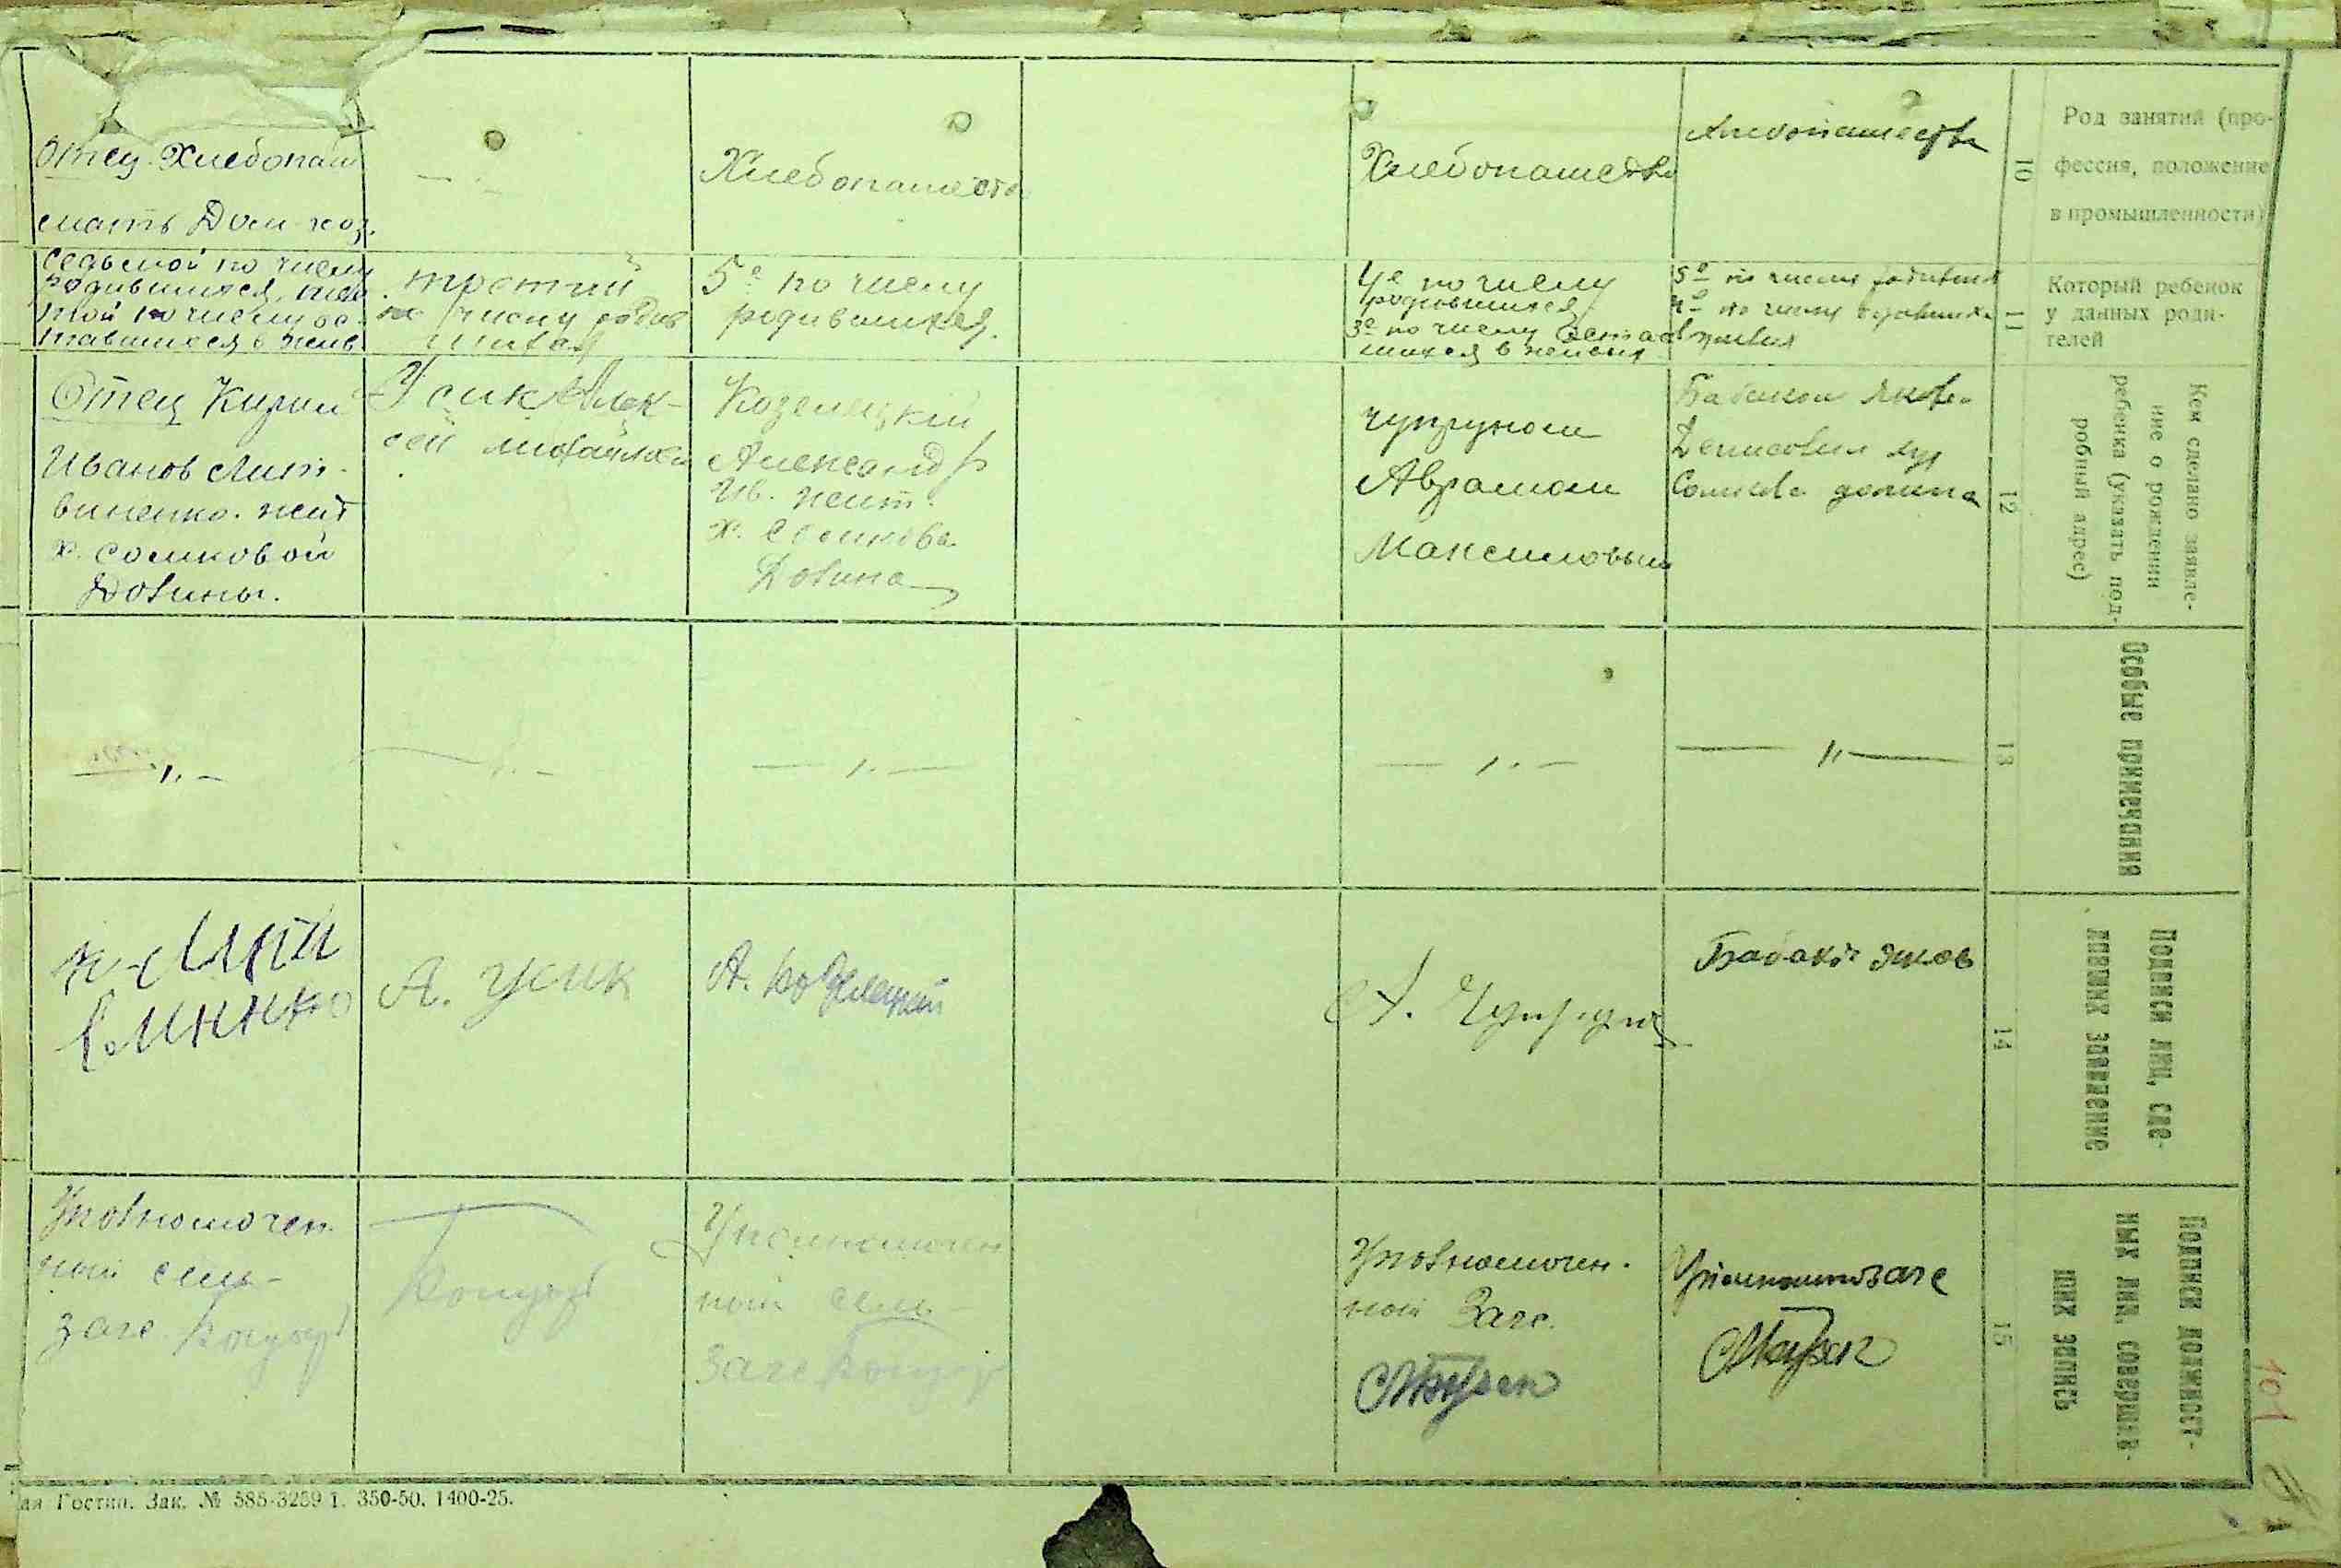 Отец Хлебопаш
мать Дом. хоз.
Хлебопашество
Хлебопашество
Хлебопашество
10
Род занятий (про-
фессия, положение
в промышленности)
седьмой по числу
родившихся,
той по числу ос-
тавшихся в жив.
третий
по числу родив
шихся
5й по числу
родившихся.
4й по числу
родившихся
3й по числу остав
шихся в живых
5й по числу родивших
4й по числу
живых
11
Который ребенок
у данных роди-
телей
Отец Кирил
Иванов Лит-
виненко. жит
х. Сомковой
Долины.
Усик Алек-
сей Михайлов
Козелецкий
Александр
Ив. жит.
х. Сомкова
Долина
Чупруном
Аврамом
Максимовым
Яков
Денисович хут
Сомкова долина
12
Кем сделано заявле-
ние о рождении
ребенка (указать под-
робный адрес)
13
Особые примечания
А. Усик
А. Козелецкий
А. Чупрун
Яков
14
Подписи лиц, сде-
лавших заявление
Уполномочен
ный сель-
загс
Уполномочен
ный сель-
загс
Уполномочен.
ный Загс.
15
Подписи должност-
ных лиц, соверша-
ших запись
101
ая Гостип. Зак. № 585-3259 г. 350-50. 1400-25.